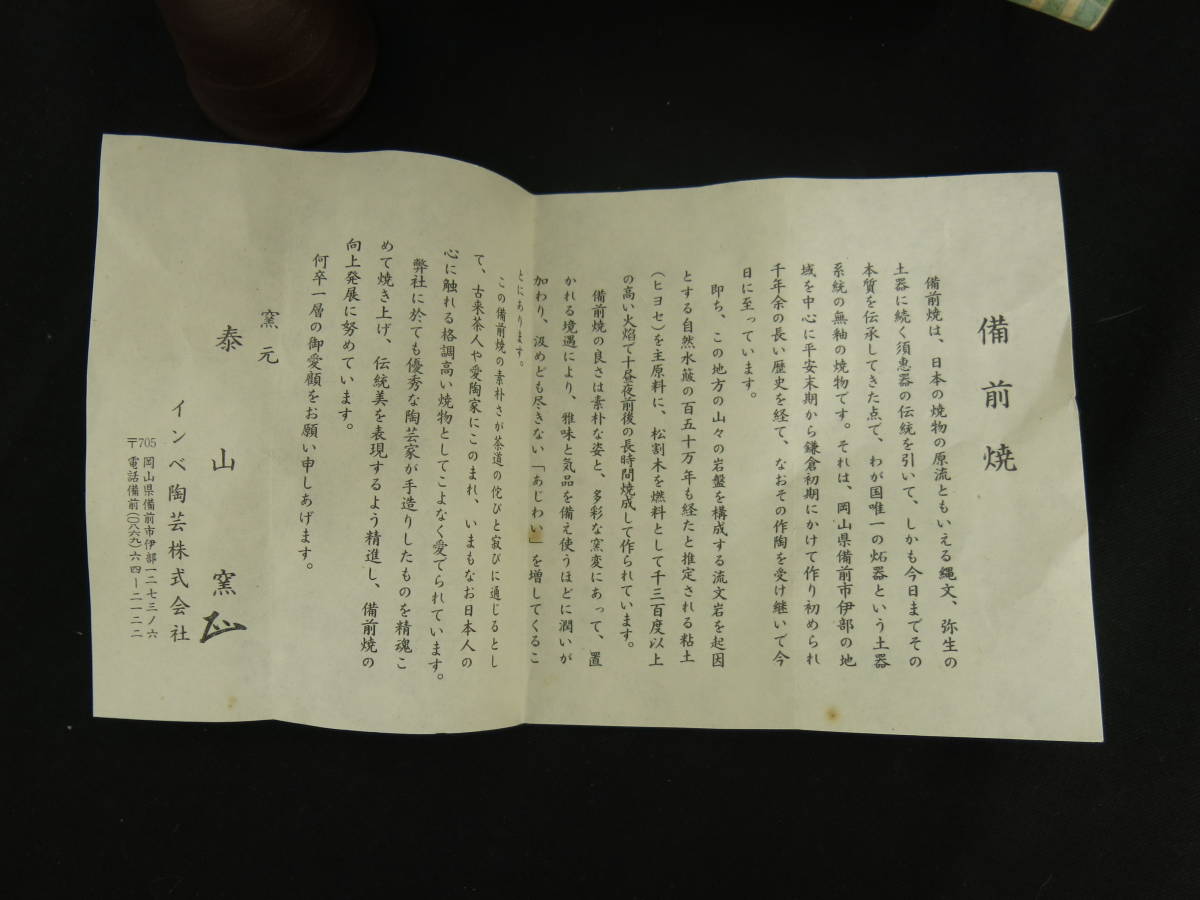 備前焼
備前焼は、日本の焼物の原流ともいえる縄文、弥生の
土器に続く須恵器の伝統を引いて、しかも今日までその
本質を伝承してきた点で、わが国唯一の炻器という土器
系統の無釉の焼物です。それは、岡山県備前市伊部の地
域を中心に平安末期から鎌倉初期にかけて作り初められ
千年余の長い歴史を経て、なおその作陶を受け継いで今
日に至っています。
即ち、この地方の山々の岩盤を構成する流文岩を起因
とする自然水簸の百五十万年も経たと推定される粘土
(ヒヨセ)を主原料に、松割木を燃料として千三百度以上
の高い火焔で十昼夜前後の長時間焼成して作られています。
備前焼の良さは素朴な姿と、多彩な窯変にあって、置
かれる境遇により、雅味と気品を備え使うほどに潤いが
加わり、汲めども尽きない「あじわい」を増してくるこ
とにあります。
この備前焼の素朴さが茶道の侘びと寂びに通じるとし
て、古来茶人や愛陶家にこのまれ、いまもなお日本人の
心に触れる格調高い焼物としてこよなく愛でられています。
弊社に於ても優秀な陶芸家が手造りしたものを精魂こ
めて焼き上げ、伝統美を表現するよう精進し、備前焼の
向上発展に努めています。
何卒一層の御愛顧をお願い申しあげます。
窯元
泰山窯
インベ陶芸株式会社
〒705 岡山県備前市伊部一二七三ノ六
電話備前(〇八六九)六四ー二一二二